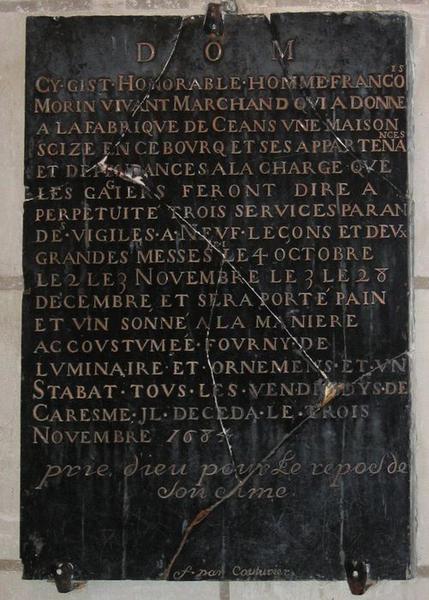 D O M
CY·GIST·HONORABLE·HOMME FRANCOIS
MORIN VIVANT MARCHAND QVI A DONNE
A LA FABRIQVE DE CEANS VNE MAISON
SCIZE EN CE BOURQ ET SES APPARTENANCES
ET DEPENDANCES A LA CHARGE QVE
LES GAGIERS FERONT DIRE A
PERPETUITE TROIS SERVICES PAR AN
DES·VIGILES·A·NEVF·LEÇONS ET DEVX
GRANDES MESSES LE 4 OCTOBRE
LE 2 LE 3 NOVEMBRE LE 3 LE 28
DECEMBRE ET SERA PORTÉ PAIN
ET VIN SONNÉ A LA MANIERE
ACCOVSTVMEE·FOVRNY·DE
LVMINAIRE ET·ORNEMENS·ET·VN
STABAT·TOVS·LES·VENDREDYS·DE
CARESME·JL·DECEDA·LE·TROIS
NOVEMBRE 1684
prie dieu pour Le repos de
Son ame.
f. par Couturier